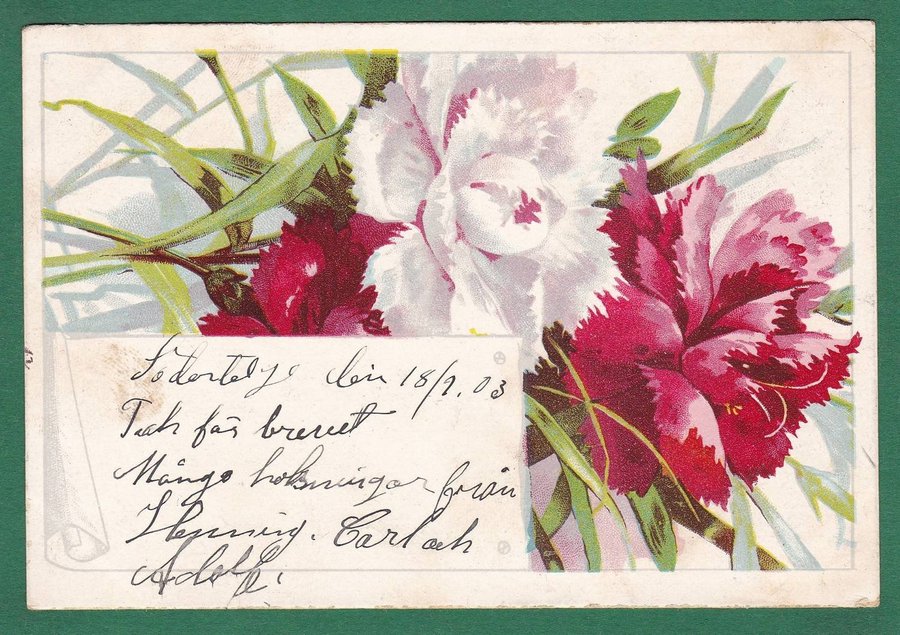 Södertelje den 18/9.03
Tack för brevet
Många helsningar från
Henning. Carl och
Adolf.